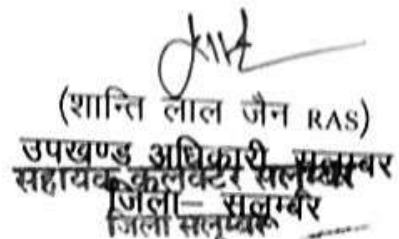 (शान्ति लाल जैन RAS)
उपखण्ड अधिकारी सलूम्बर
सहायक कलेक्टर सलूम्बर
जिला– सलूम्बर
जिला सलूम्बर